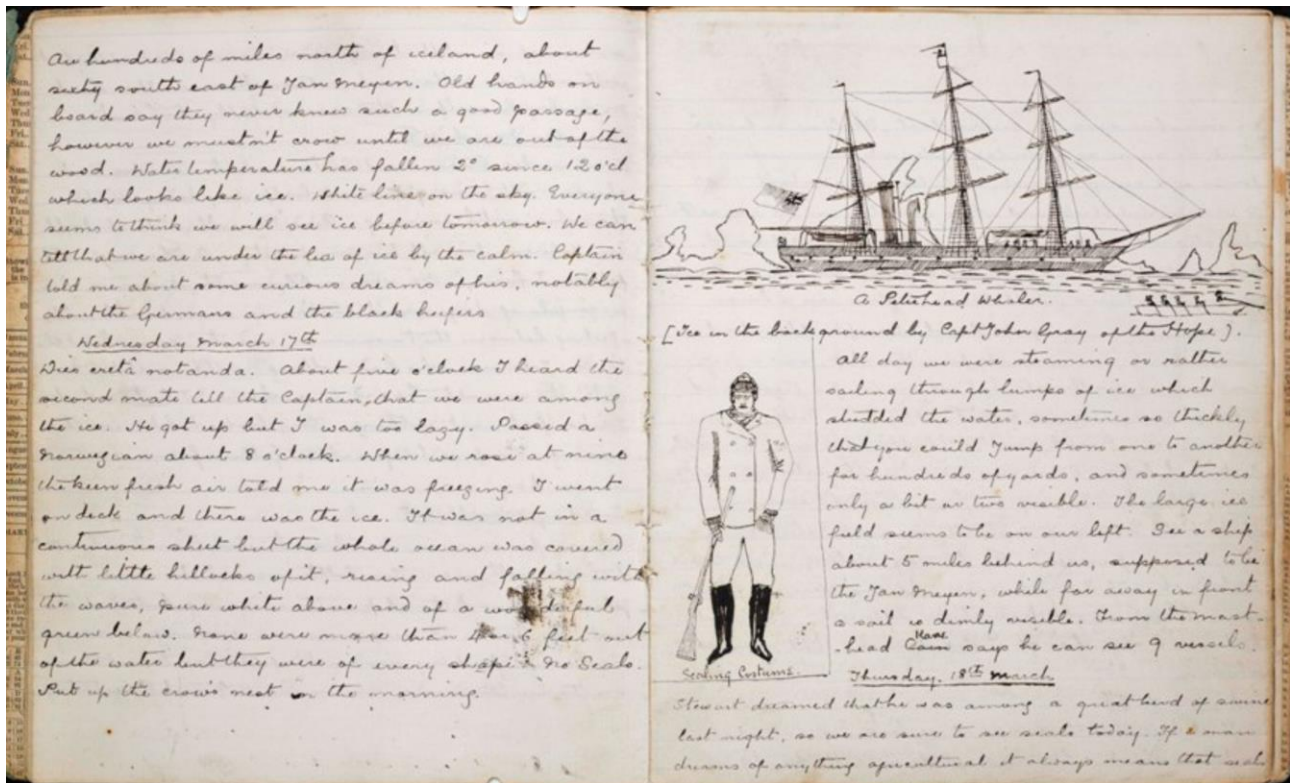 hundreds of miles north of iceland, about
sixty south east of Jan Meyen. Old hands on
board say they never knew such a good passage,
however we mustn't crow until we are out of the
wood. Water temperature has fallen 2° since 12 o'cl
which looks like ice. White line on the sky. Everyone
seems to think we will see ice before tomorrow. We can
tell that we are under the lea of ice by the calm. Captain
told me about some curious dreams of his, notably
about the Germans and the black heifers
Wednesday March 17th
Dies cretâ notanda. About five o'clock I heard the
second mate tell the Captain, that we were among
the ice. He got up but I was too lazy. Passed a
Norwegian about 8 o'clock. When we rose at nine
the keen fresh air told me it was freezing. I went
on deck and there was the ice. It was not in a
continuous sheet but the whole ocean was covered
with little hillocks of it, rising and falling with
the waves, pure white above and of a wonderful
green below. None were more than 4 or 6 feet out
of the water but they were of every shape. No Seals.
Put up the crow's nest in the morning.
A Peterhead Whaler.
[Ice in the background by Capt John Gray of the Hope].
All day we were steaming or rather
sailing through lumps of ice which
studded the water, sometimes so thickly
that you could jump from one to another
for hundreds of yards, and sometimes
only a bit or two visible. The large ice
field seems to be on our left. See a ship
about 5 miles behind us, supposed to be
the Jan Meyen, while far away in front
a sail is dimly visible. From the mast-
-head says he can see 9 vessels.
Sealing Costume.
Thursday. 18th March
Stewart dreamed that he was among a great herd of swine
last night, so we are sure to see seals today. If a man
dreams of anything agricultural it always means that seals